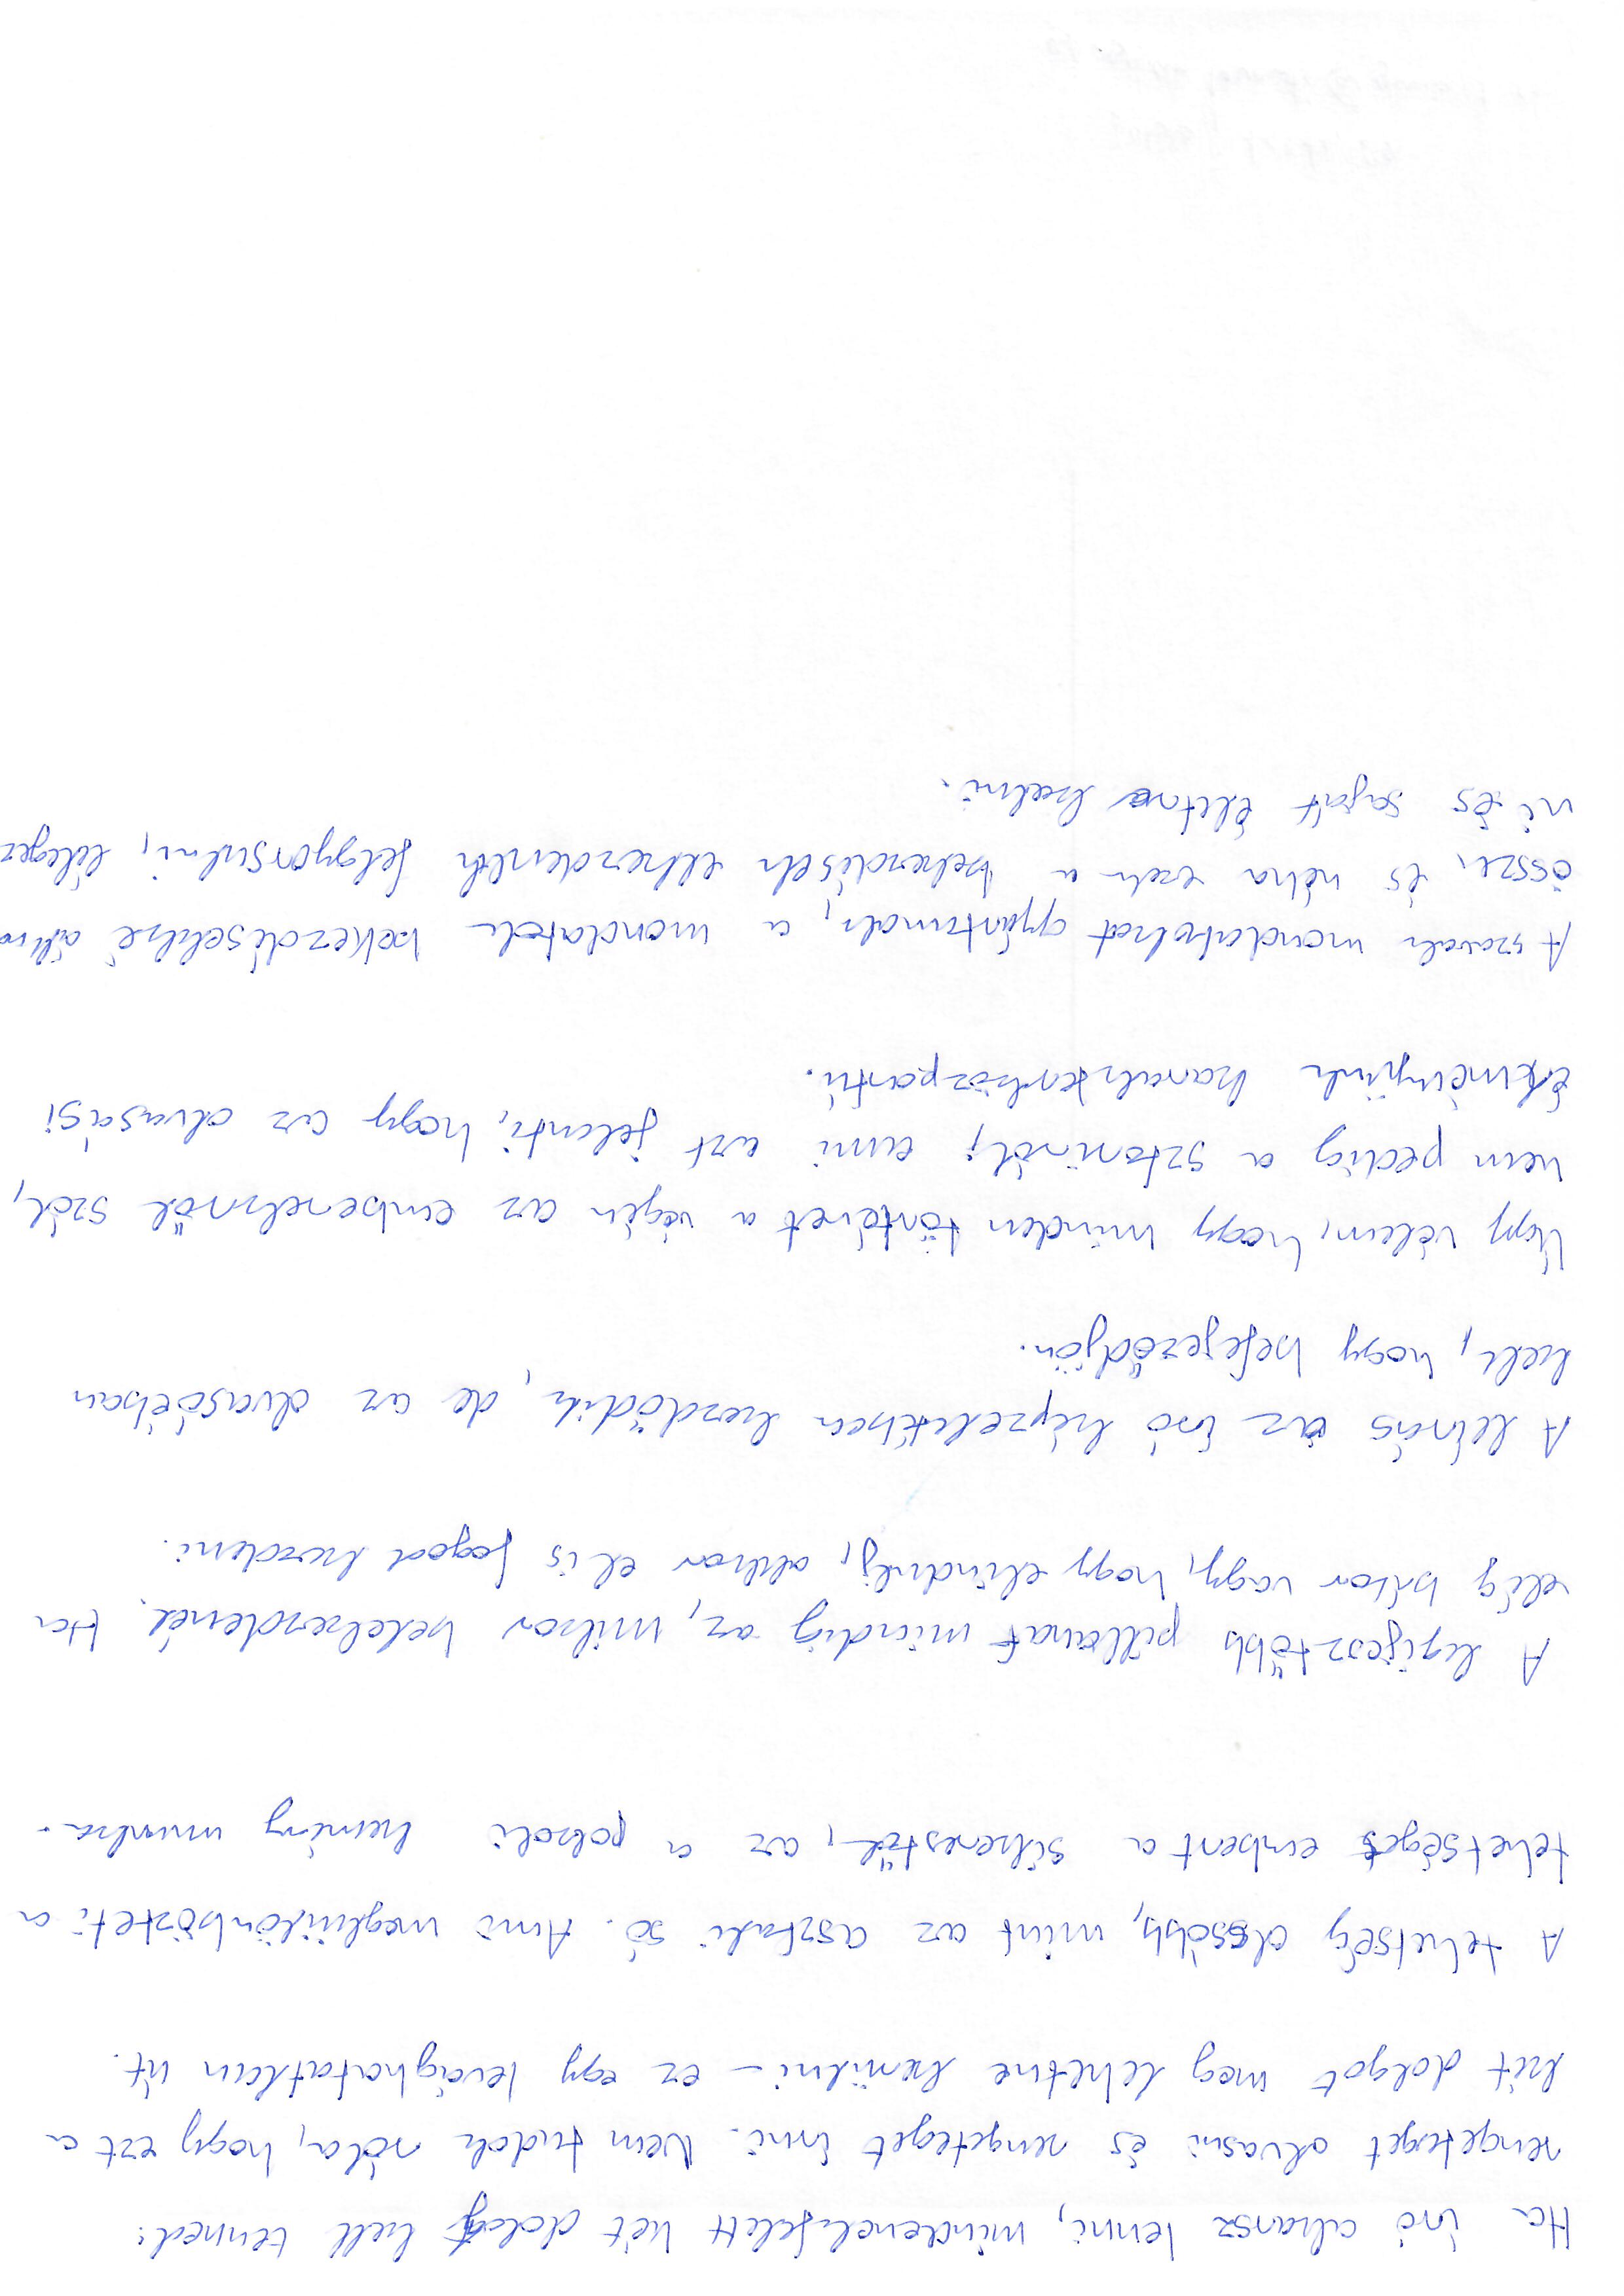 Ha író akarsz lenni, mindenekfelett két dolgot kell tenned:
rengeteget olvasni és rengeteget írni. Nem tudok róla, hogy ezt a
két dolgot meg lehetne kerülni - ez egy levághatatlan út.
A tehetség olcsóbb, mint az asztali só. Ami megkülönbözteti a
tehetséges embert a sikerestől, az a pokoli kemény munka.
A legijesztőbb pillanat mindig az, mikor belekezdenél. Ha
elég bátor vagy, hogy elindulj, akkor el is fogod kezdeni.
A leírás az író képzeletében kezdődik, de az olvasóéban
kell, hogy befejeződjön.
Úgy vélem, hogy minden történet a végén az emberekről szól,
nem pedig a sztoriról; ami azt jelenti, hogy az olvasási
élményünk karakterközpontú.
A szavak mondatokat gyártanak, a mondatok bekezdésekké
össze, és néha ezek a bekezdések elkezdenek felgyorsulni, lélegez
ni és saját életre kelni.